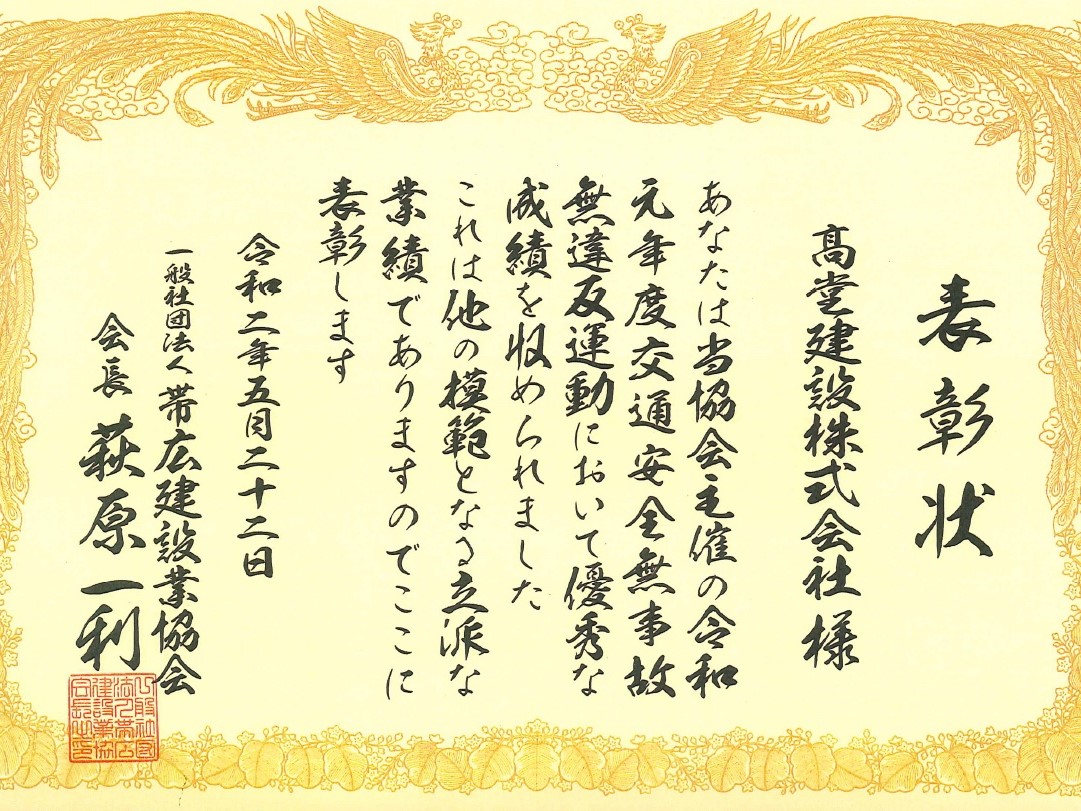 表彰状
髙堂建設株式会社 様
あなたは当協会主催の令和
元年度交通安全無事故
無違反運動において優秀な
成績を収められました
これは他の模範となる立派な
業績でありますのでここに
表彰します
令和二年五月二十二日
一般社団法人 帯広建設業協会
会長 萩原一利